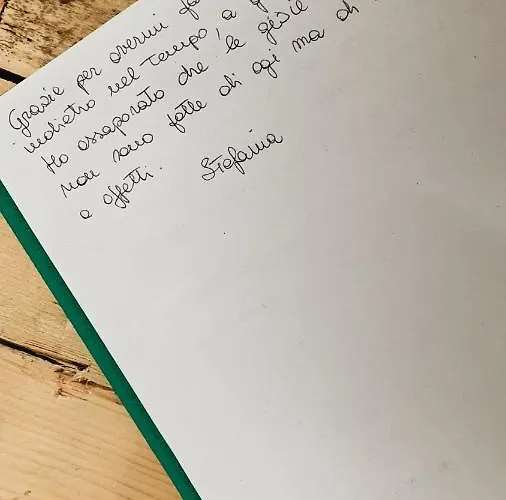 Grazie per avermi
indietro nel tempo, a
Ho assaporato che le gioie
non sono fatte di ogi ma di
e affetti.
Stefania